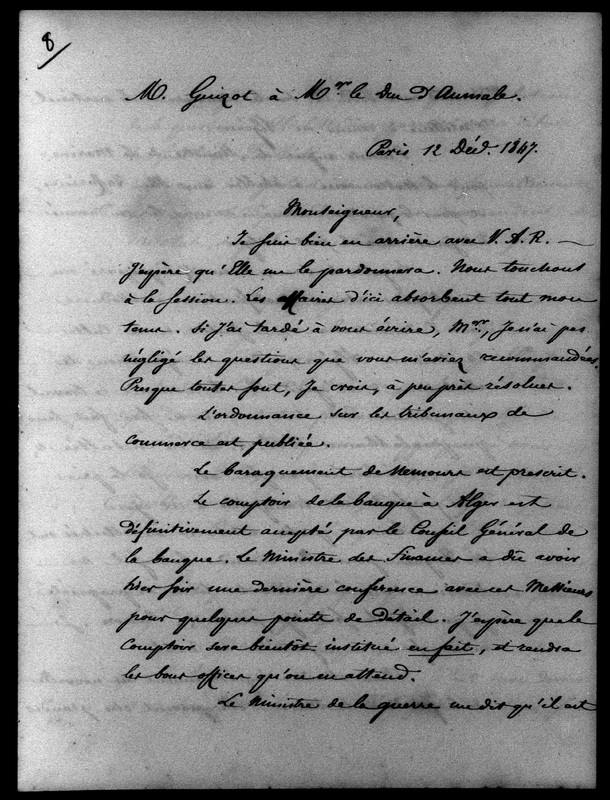 8
M. Guizot à Mgr le Duc d'Aumale.
Paris 12 Déc. 1847.
Monseigneur,
Je suis bien en arrière avec V. A. R. —
J'espère qu'Elle me le pardonnera. Nous touchons
à la session. Les affaires d'ici absorbent tout mon
tems. Si j'ai tardé à vous écrire, Mgr, je n'ai pas
négligé les questions que vous m'aviez recommandées.
Presque toutes sont, je crois, à peu près résolues.
L'ordonnance sur les tribunaux de
commerce est publiée.
Le baraquement de Nemours est prescrit.
Le comptoir de la banque à Alger est
définitivement accepté par le Conseil Général de
la banque. Le Ministre des finances a dû avoir
hier soir une dernière conférence avec ces Messieurs
pour quelques points de détail. J'espère que le
comptoir sera bientôt institué en fait, et rendra
les bons offices qu'on en attend.
Le Ministre de la guerre me dit qu'il est